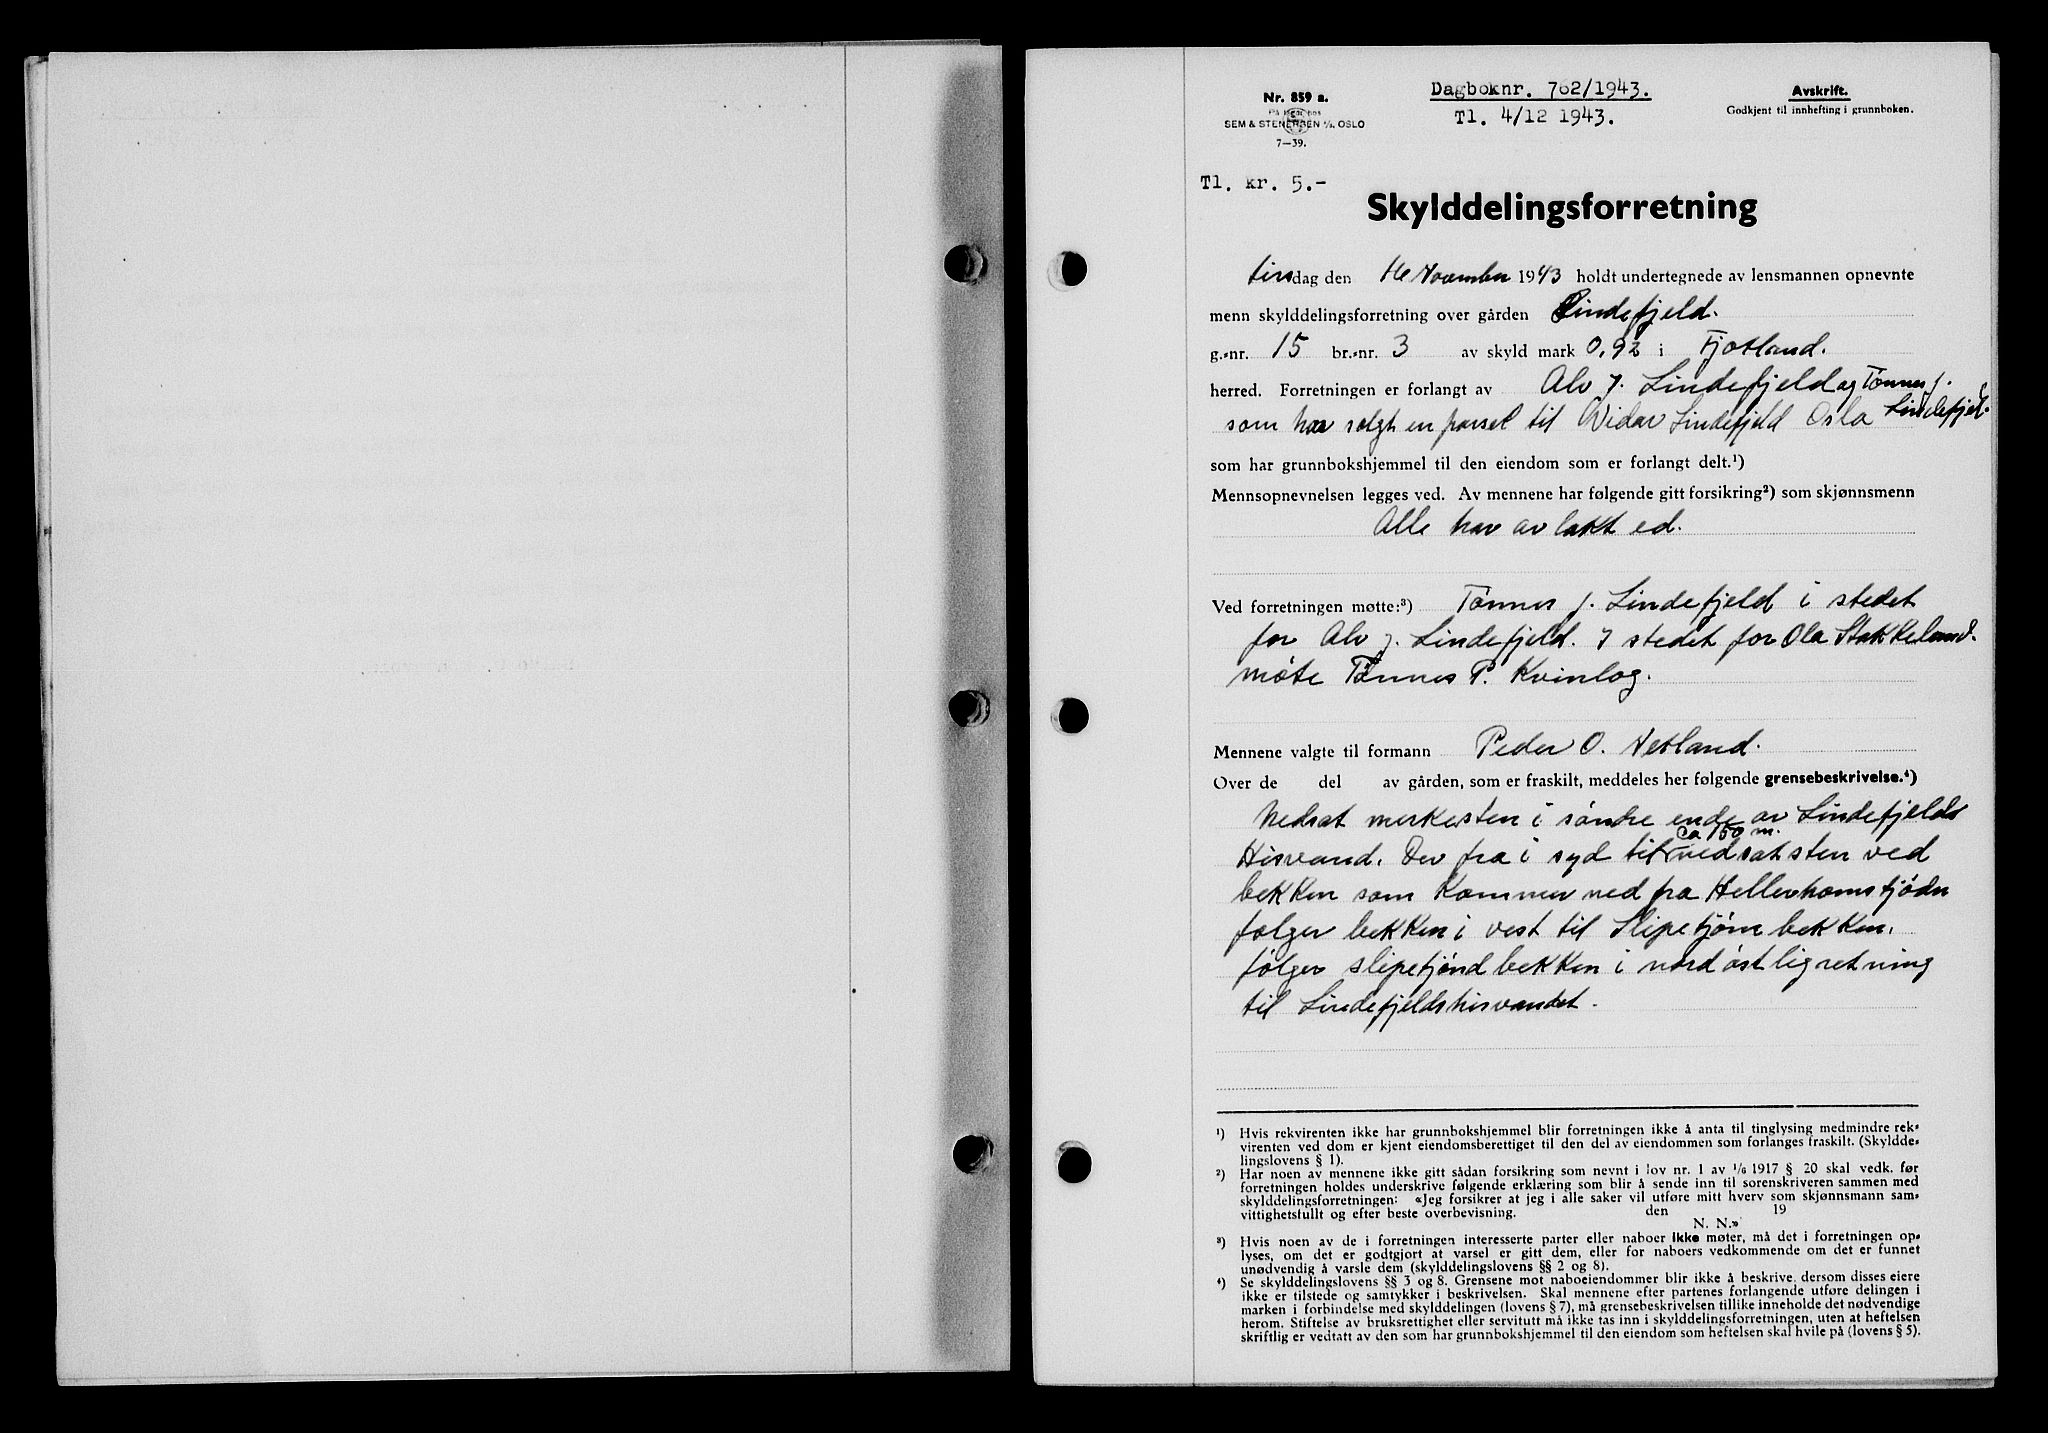 Nr. 859 a.
SEM & STENERSEN A/S, OSLO
7—39.
Dagboknr. 762/1943.
Tl. 4/12 1943.
Avskrift.
Godkjent til innhefting i grunnboken.
Tl. kr. 5.-
Skylddelingsforretning
tirsdag den 16 November 1943 holdt undertegnede av lensmannen opnevnte
menn skylddelingsforretning over gården Lindefjeld.
g.-nr. 15 br.-nr. 3 av skyld mark 0,92 i Fjotland.
herred. Forretningen er forlangt av Alv J. Lindefjeld og Tønnes J.
som har solgt en parsel til Vidar Lindefjeld Oslo Lindefjel.
som har grunnbokshjemmel til den eiendom som er forlangt delt.¹)
Mennsopnevnelsen legges ved. Av mennene har følgende gitt forsikring²) som skjønnsmenn
Alle har av lakt ed.
Ved forretningen møtte:³) Tønnes J. Lindefjeld i stedet
for Alv J. Lindefjeld. I stedet for Ola Stakkeland.
møte Tønnes P. Kvinlog.
Mennene valgte til formann Peder O. Netland.
Over de del av gården, som er fraskilt, meddeles her følgende grensebeskrivelse.⁴)
Nedsat merkesten i søndre ende av Lindefjelds
ca 150 m.
Hisvand. Der fra i syd til nedsat sten ved
bekken som kommer ned fra Hellerhomstjødn
følger bekken i vest til Slipetjørn bekken.
følger slipetjønd bekken i nordøstlig retning
til Lindefjeldshisvandet.
¹) Hvis rekvirenten ikke har grunnbokshjemmel blir forretningen ikke å anta til tinglysing medmindre rek-
virenten ved dom er kjent eiendomsberettiget til den del av eiendommen som forlanges fraskilt. (Skyldde-
lingslovens § 1).
²) Har noen av mennene ikke gitt sådan forsikring som nevnt i lov nr. 1 av 1/6 1917 § 20 skal vedk. før
forretningen holdes underskrive følgende erklæring som blir å sende inn til sorenskriveren sammen med
skylddelingsforretningen: «Jeg forsikrer at jeg i alle saker vil utføre mitt hverv som skjønnsmann sam-
vittighetsfullt og efter beste overbevisning. den 19
N. N.»
³) Hvis noen av de i forretningen interesserte parter eller naboer ikke møter, må det i forretningen op-
lyses, om det er godtgjort at varsel er gitt dem, eller for naboers vedkommende om det er funnet
unødvendig å varsle dem (skylddelingslovens §§ 2 og 8).
⁴) Se skylddelingslovens §§ 3 og 8. Grensene mot naboeiendommer blir ikke å beskrive, dersom disses eiere
ikke er tilstede og samtykker i beskrivelsen. Skal mennene efter partenes forlangende utføre delingen i
marken i forbindelse med skylddelingen (lovens § 7), må grensebeskrivelsen tillike inneholde det nødvendige
herom. Stiftelse av bruksrettighet eller servitutt må ikke tas inn i skylddelingsforretningen, uten at heftelsen
skriftlig er vedtatt av den som har grunnbokshjemmel til den eiendom som heftelsen skal hvile på (lovens § 5).